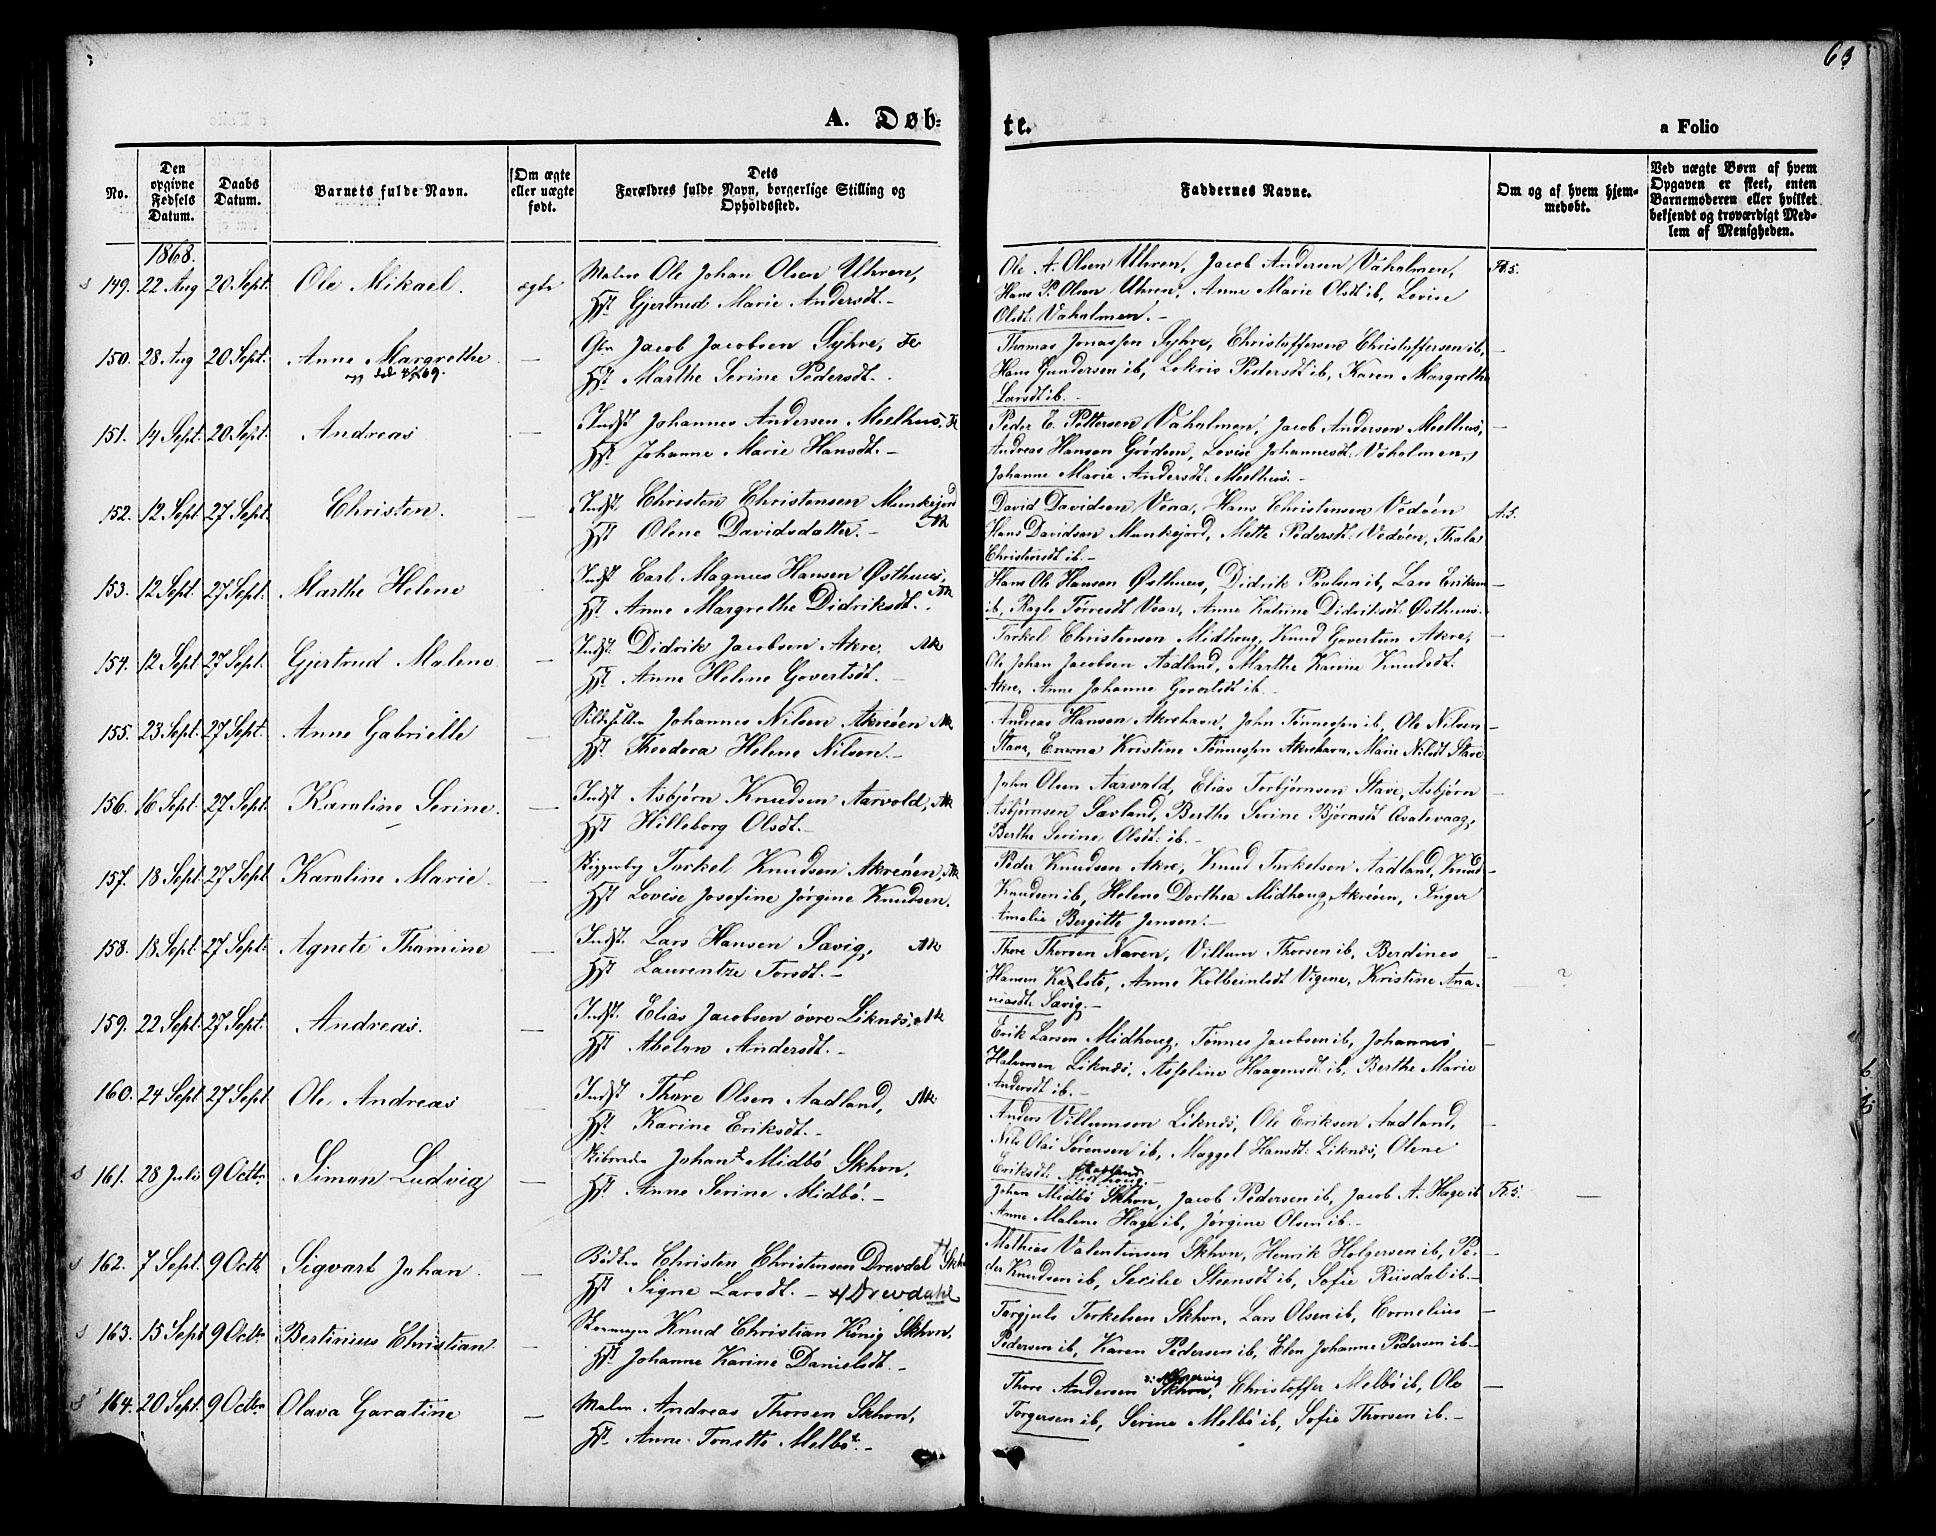 63
A. Døb=
te.
a Folio
No.
Den opgivne Fødsels Datum.
Daabs Datum.
Barnets fulde Navn.
Om ægte eller uægte født.
Dets Forældres fulde Navn, borgerlige Stilling og Opholdssted.
Faddernes Navne.
Om og af hvem hjemmedøbt.
Ved uægte Børn af hvem Opgaven er skeet, enten Barnemoderen eller hvilket bekjendt og troværdigt Medlem af Menigheden.
1868.
149. 22 Aug 20 Sept. Ole Mikael. ægte Ole Johan Olsen Uhren,
Hst. Gjertrud Marie Andersdt.
Ole A. Olsen Uhren, Jacob Andersen Vaholmen,
Hans P. Olsen Uhren, Anne Marie Olsdt ib, Lovise
Olsdt. Vaholmen.
150. 28 Aug 20 Sept. Anne Margrethe — Jacob Jacobsen Syhre,
Hst Marthe Serine Pedersdt.
Thomas Jonassen Syhre, Christoffersen Christoffersen ib,
Hans Gundersen ib, Pedersdt ib, Karen Margrethe
Larsdt ib.
151. 14 Sept. 20 Sept. Andreas — Indst Johannes Andersen Meelhus,
Hst. Johanne Marie Hansdt.
Peder E. Pettersen Vaholmen, Jacob Andersen Meelhus,
Andreas Hansen, Lovise Johannesdt. Vaholmen,
Johanne Marie Andersdt. Meelhus.
152. 12 Sept. 27 Sept. Christen. — Indst. Christen Christensen Munkejord
Hst Olene Davidsdatter.
David Davidsen Veaa, Hans Christensen Vedöen
Hans Davidsen Munkejord, Mette Pedersdt. Vedöen,
Christensdt ib.
153. 12 Sept. 27 Sept. Marthe Helene Indst Carl Magnus Hansen Østhuus, Ak
Hst. Anne Margrethe Didriksdt.
Hans Ole Hansen Østhuus, Didrik Poulsen ib, Lars Eriksen
ib, Torresdt Veaa, Anne Katrine Didriksdt. Østhuus.
154. 12 Sept 27 Sept. Gjertrud Malene — Indst. Didrik Jacobsen Akre, Ak
Hst. Anne Helene Govertsdt.
Torkel Christensen Midhoug, Knud Govertsen Akre,
Ole Johan Jacobsen Aadland, Marthe Karine Knudsdt.
Akre, Anne Johanne Govertsdt ib.
155. 23 Sept. 27 Sept. Anne Gabrielle — Johannes Nilsen Akreöen Ak
Hst. Theodora Helene Nilsen.
Andreas Hansen Akrehavn, John Tönnessen ib, Ole Nilsen
Stave, Kristine Tönnessen Akrehavn, Marie Nilsdt Stave
156. 16 Sept. 27 Sept. Karoline Serine. — Indst Asbjørn Knudsen Aarvold, Ak
Hst Hilleborg Olsdt.
John Olsen Aarvold, Elias Torbjørnsen Stave, Asbjørn
Asbjørnsen Sævland, Berthe Serine Björnsdt Qvalevaag,
Berthe Serine Olsdt. ib.
157. 18 Sept. 27 Sept Karoline Marie. — Torkel Knudsen Akreöen, Ak
Hst Lovise Josefine Jørgine Knudsen.
Peder Knudsen Akre, Knud Torkelsen Aadland, Knud
Knudsen ib, Helene Dorthea Midhoug Akreöen, Inger
Amalie Bergitte Jensen.
158. 18 Sept. 27 Sept. Agnete Thamine — Indst. Lars Hansen Sævig, Ak
Hst Laurentze Torsdt.
Thore Thorsen Naven, Villum Thorsen ib, Berdines
Hansen Kalstö, Anne Kolbeinsdt Vigene, Kristine Ana-
niasdt. Sævig.
159. 22 Sept. 27 Sept. Andreas. — Indst. Elias Jacobsen övre Liknæs, Ak
Hst Andersdt.
Erik Larsen Midhoug, Tønnes Jacobsen ib, Johannes
Halvorsen Liknæs, Asseline Haagensdt ib, Berthe Marie
Andersdt ib.
160. 24 Sept 27 Sept Ole Andreas — Indst Thore Olsen Aadland, Ak
Hst. Karine Eriksdt.
Anders Villumsen Liknæs, Ole Eriksen Aadland,
Nils Olai Sörensen ib, Maggel Hansdt. Liknæs, Olene
Eriksdt. Aadland
161. 28 Juli 9 Octbr Simon Ludvig — Johan Midbö Skhvn,
Hst. Anne Serine Midbö.
Johan Midbö Skhvn, Jacob Pedersen ib, Jacob A. Hage ib
Anne Malene Hage ib, Jørgine Olsen ib.
162. 7 Sept. 9 Octb Sigvart Johan — Christen Christensen Drevdal Skhn
Hst Signe Larsdt. Drevdahl
Mathias Valentinsen Skhvn, Henrik Holgersen ib, Pe-
der Knudsen ib, Secilie Steensdt ib, Sofie Riisdal ib.
163. 15 Sept 9 Octbr Bertinius Christian — Knud Christian König Skhvn,
Hst. Johanne Karine Danielsdt.
Torgjuls Torkelsen Skhvn, Lars Olsen ib, Cornelius
Pedersen ib, Karen Pedersen ib, Elen Johanne Pedersen ib
164. 20 Sept. 9 Octbr Olava Garatine — Andreas Thorsen Skhvn,
Hst. Anne Tonette Melbö.
Thore Andersen Skhvn, Christoffer Melbö ib, Ole
Torgersen ib, Serine Melbö ib, Sofie Thorsen ib.